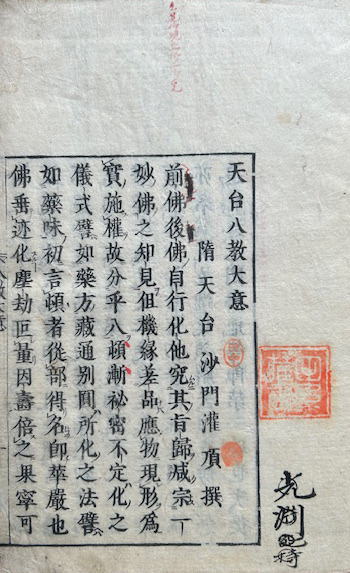 天台八教大意
隋天台沙門灌頂撰
前佛後佛自行化他究其旨歸咸宗一
妙佛之知見但機緣差品應物現形爲
實施權故分乎八頓漸祕密不定化之
儀式譬如藥方藏通別圓所化之法譬
如藥味初言頓者從部得名即華嚴也
佛垂迹化塵劫叵量因壽倍之果寧可